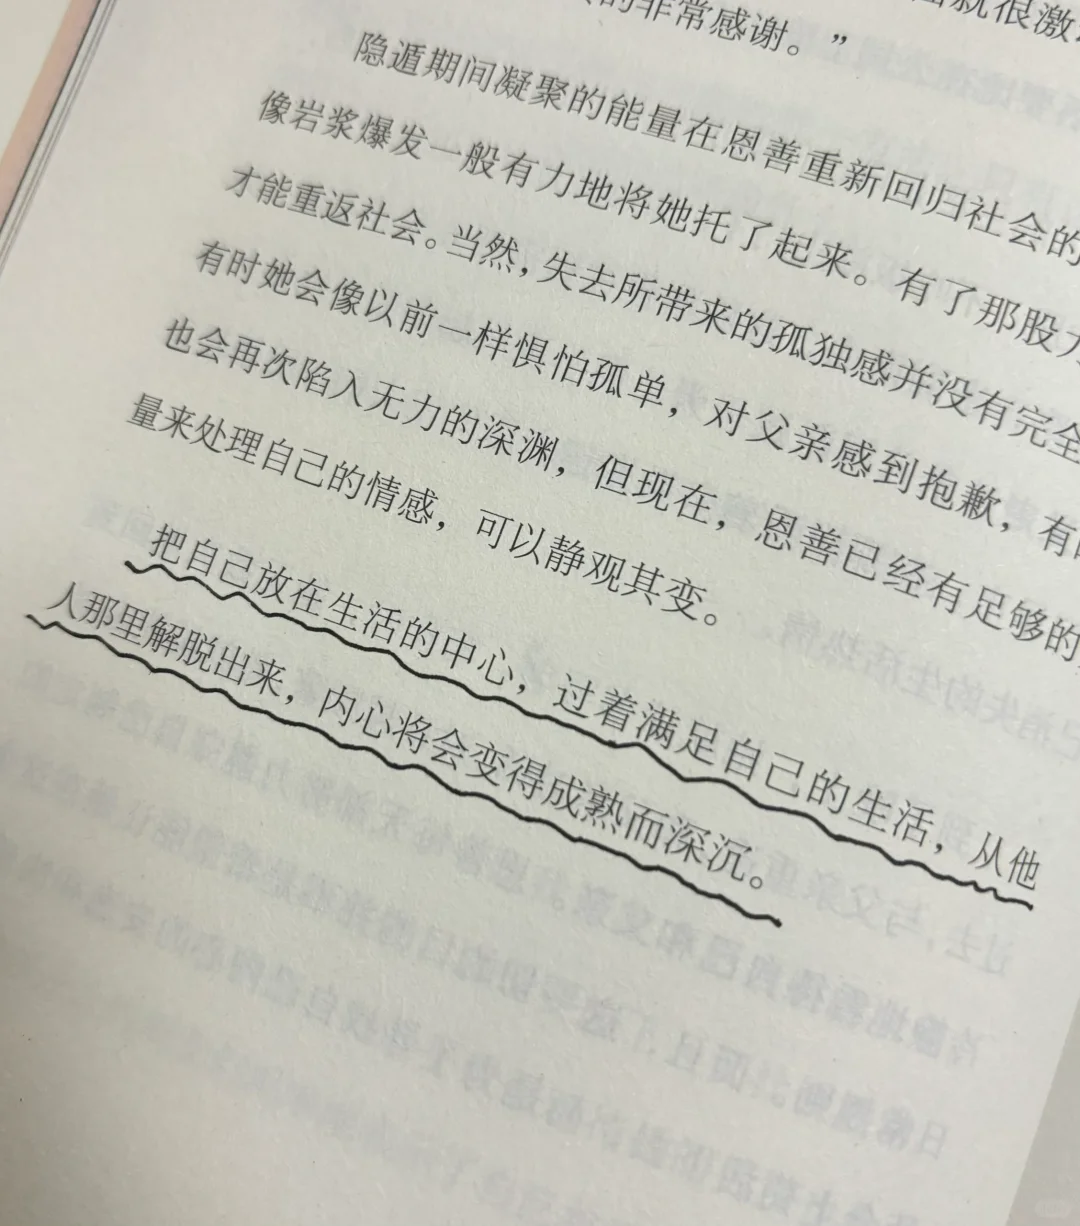 就很激
的非常感谢。”
隐遁期间凝聚的能量在恩善重新回归社会的
像岩浆爆发一般有力地将她托了起来。有了那股力
才能重返社会。当然，失去所带来的孤独感并没有完全
有时她会像以前一样惧怕孤单，对父亲感到抱歉，有
也会再次陷入无力的深渊，但现在，恩善已经有足够的
量来处理自己的情感，可以静观其变。
把自己放在生活的中心，过着满足自己的生活，从他
人那里解脱出来，内心将会变得成熟而深沉。